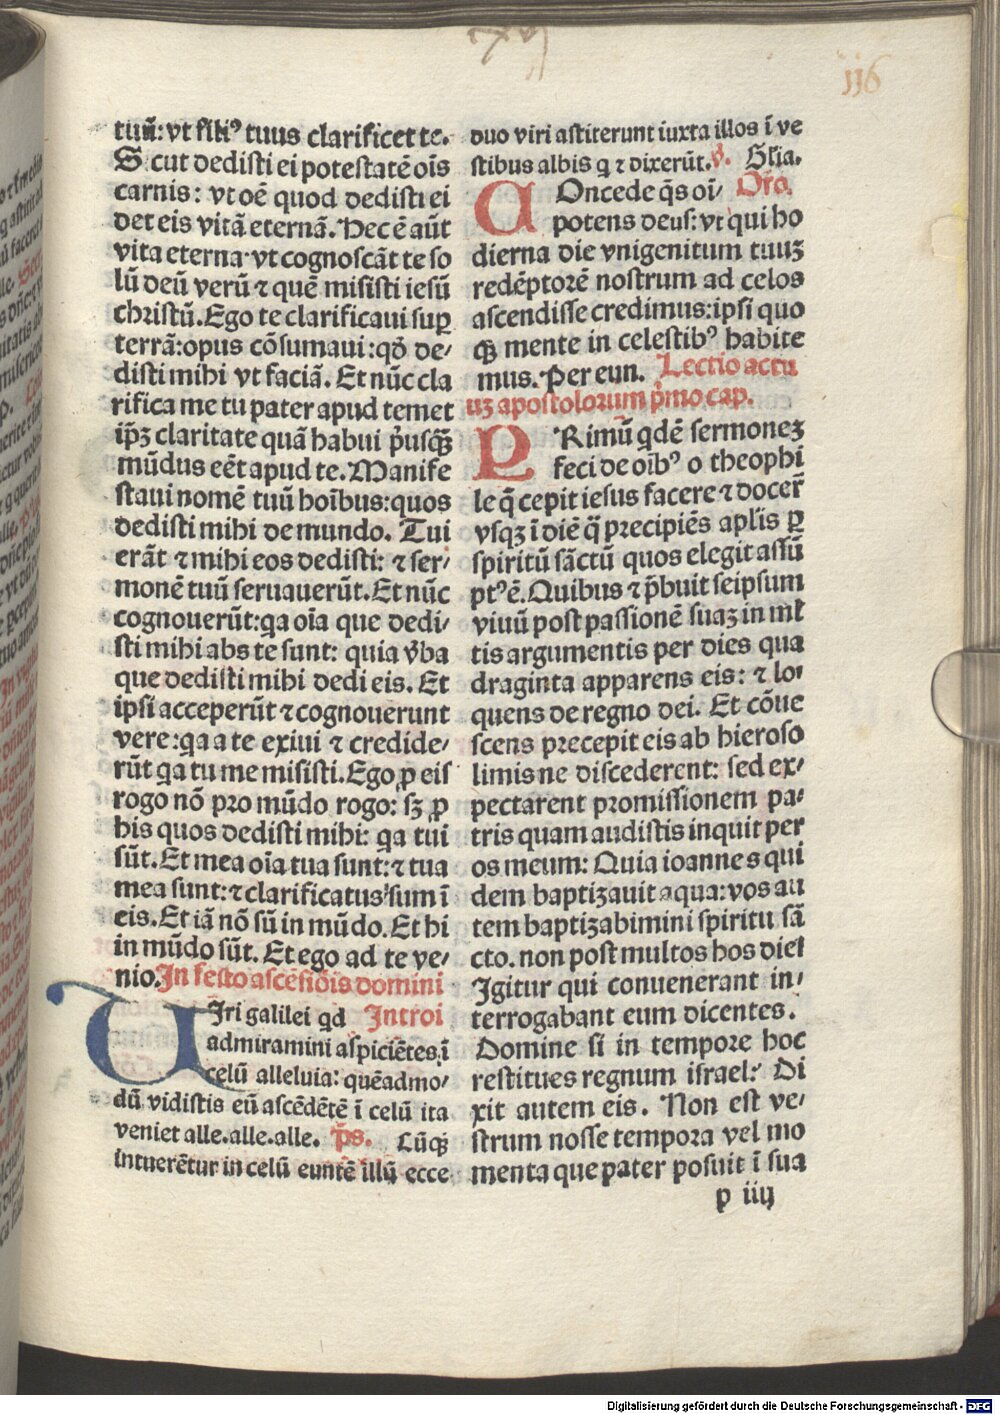 116
tuū: vt filiꝰ tuus clarificet te.
Sicut dedisti ei potestatē oīs
carnis: vt oē quod dedisti ei
det eis vitā eternā. Hec ē aūt
vita eterna vt cognoscāt te so
lū deū verū ⁊ quē misisti iesū
christū. Ego te clarificaui suꝑ
terrā: opus cōsumaui: qd̄ de/
disti mihi vt faciā. Et nūc cla
rifica me tu pater apud temet
ip̄ꝫ claritate quā habui p̄usqꝫ
mūdus eēt apud te. Manife
staui nomē tuū hoībus: quos
dedisti mihi de mundo. Tui
erāt ⁊ mihi eos dedisti: ⁊ ser/
monē tuū seruauerūt. Et nūc
cognouerūt: qa oīa que dedi/
sti mihi abs te sunt: quia v̄ba
que dedisti mihi dedi eis. Et
ipsi acceperūt ⁊ cognouerunt
vere: qa a te exiui ⁊ credide/
rūt qa tu me misisti. Ego ꝓ eis
rogo nō pro mūdo rogo: sꝫ ꝓ
his quos dedisti mihi: qa tui
sūt. Et mea oīa tua sunt: ⁊ tua
mea sunt: ⁊ clarificatus sum ī
eis. Et iā nō sū in mūdo. Et hi
in mūdo sūt. Et ego ad te ve/
nio. In festo ascēsiōis domini
UIri galilei qd Introi
admiramini aspiciētes ī
celū alleluia: quēadmo/
dū vidistis eū ascēdētē ī celū ita
veniet alle. alle. alle. p̄s. Cūqꝫ
intuerētur in celū euntē illū ecce
duo viri astiterunt iuxta illos ī ve
stibus albis q ⁊ dixerūt. v̄. Gl̄ia.
COncede q̄s oī/ Or̄o.
potens deus: vt qui ho
dierna die vnigenitum tuuꝫ
redēptorē nostrum ad celos
ascendisse credimus: ipsi quo
qꝫ mente in celestibꝰ habite
mus. Per eun. Lectio actu
uꝫ apostolorum p̄mo cap.
PRimū qdē sermoneꝫ
feci de oībꝰ o theophi
le q̄ cepit iesus facere ⁊ docer̄
vsqꝫ ī diē q̄ precipiēs apl̄is ꝑ
spiritū sāctū quos elegit assū
ptꝰ ē. Quibus ⁊ p̄buit seipsum
viuū post passionē suaꝫ in ml̄
tis argumentis per dies qua
draginta apparens eis: ⁊ lo/
quens de regno dei. Et cōue
scens precepit eis ab hieroso
limis ne discederent: sed ex/
pectarent promissionem pa/
tris quam audistis inquit per
os meum: Quia ioannes qui
dem baptizauit aqua: vos au
tem baptizabimini spiritu sā
cto. non post multos hos dies
Igitur qui conuenerant in/
terrogabant eum dicentes.
Domine si in tempore hoc
restitues regnum israel? Di
xit autem eis. Non est ve/
strum nosse tempora vel mo
menta que pater posuit ī sua
p iiij
Digitalisierung gefördert durch die Deutsche Forschungsgemeinschaft - DFG